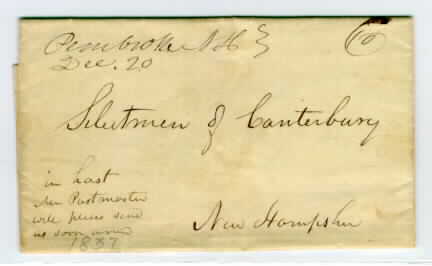 Pembroke N H
Dec. 20
10
Selectmen of Canterbury
in hast
Mr Postmaster
will please send
as soon as
New Hampshire
1837